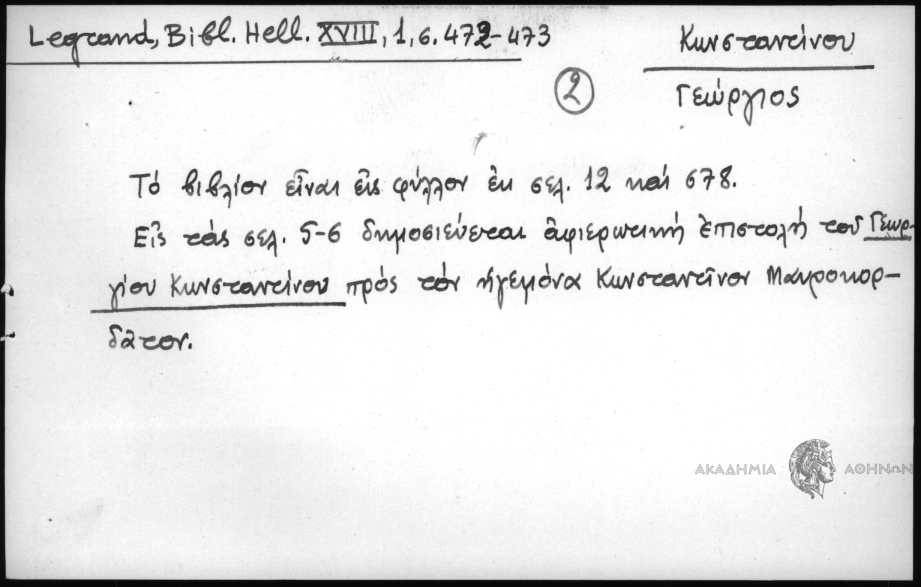 Legrand, Bibl. Hell. XVIII, 1, σ. 472-473
Κωνσταντίνου
②
Γεώργιος
Τό βιβλίον εἶναι εἰς φύλλον ἐκ σελ. 12 καί 678.
Εἰς τάς σελ. 5-6 δημοσιεύεται ἀφιερωτική ἐπιστολή τοῦ Γεωρ-
γίου Κωνσταντίνου πρός τόν ἡγεμόνα Κωνσταντῖνον Μαυροκορ-
δᾶτον.
ΑΚΑΔΗΜΙΑ ΑΘΗΝΩΝ